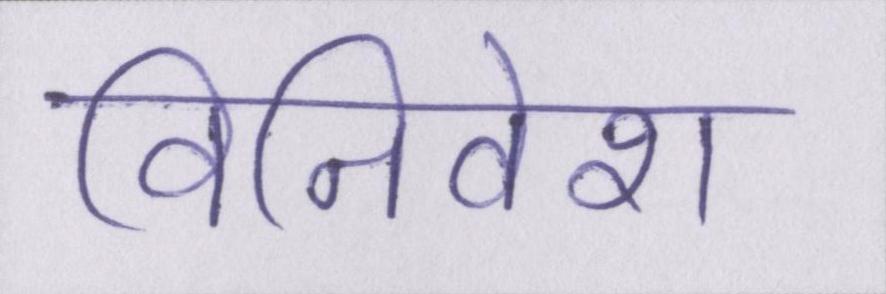 विनिवेश